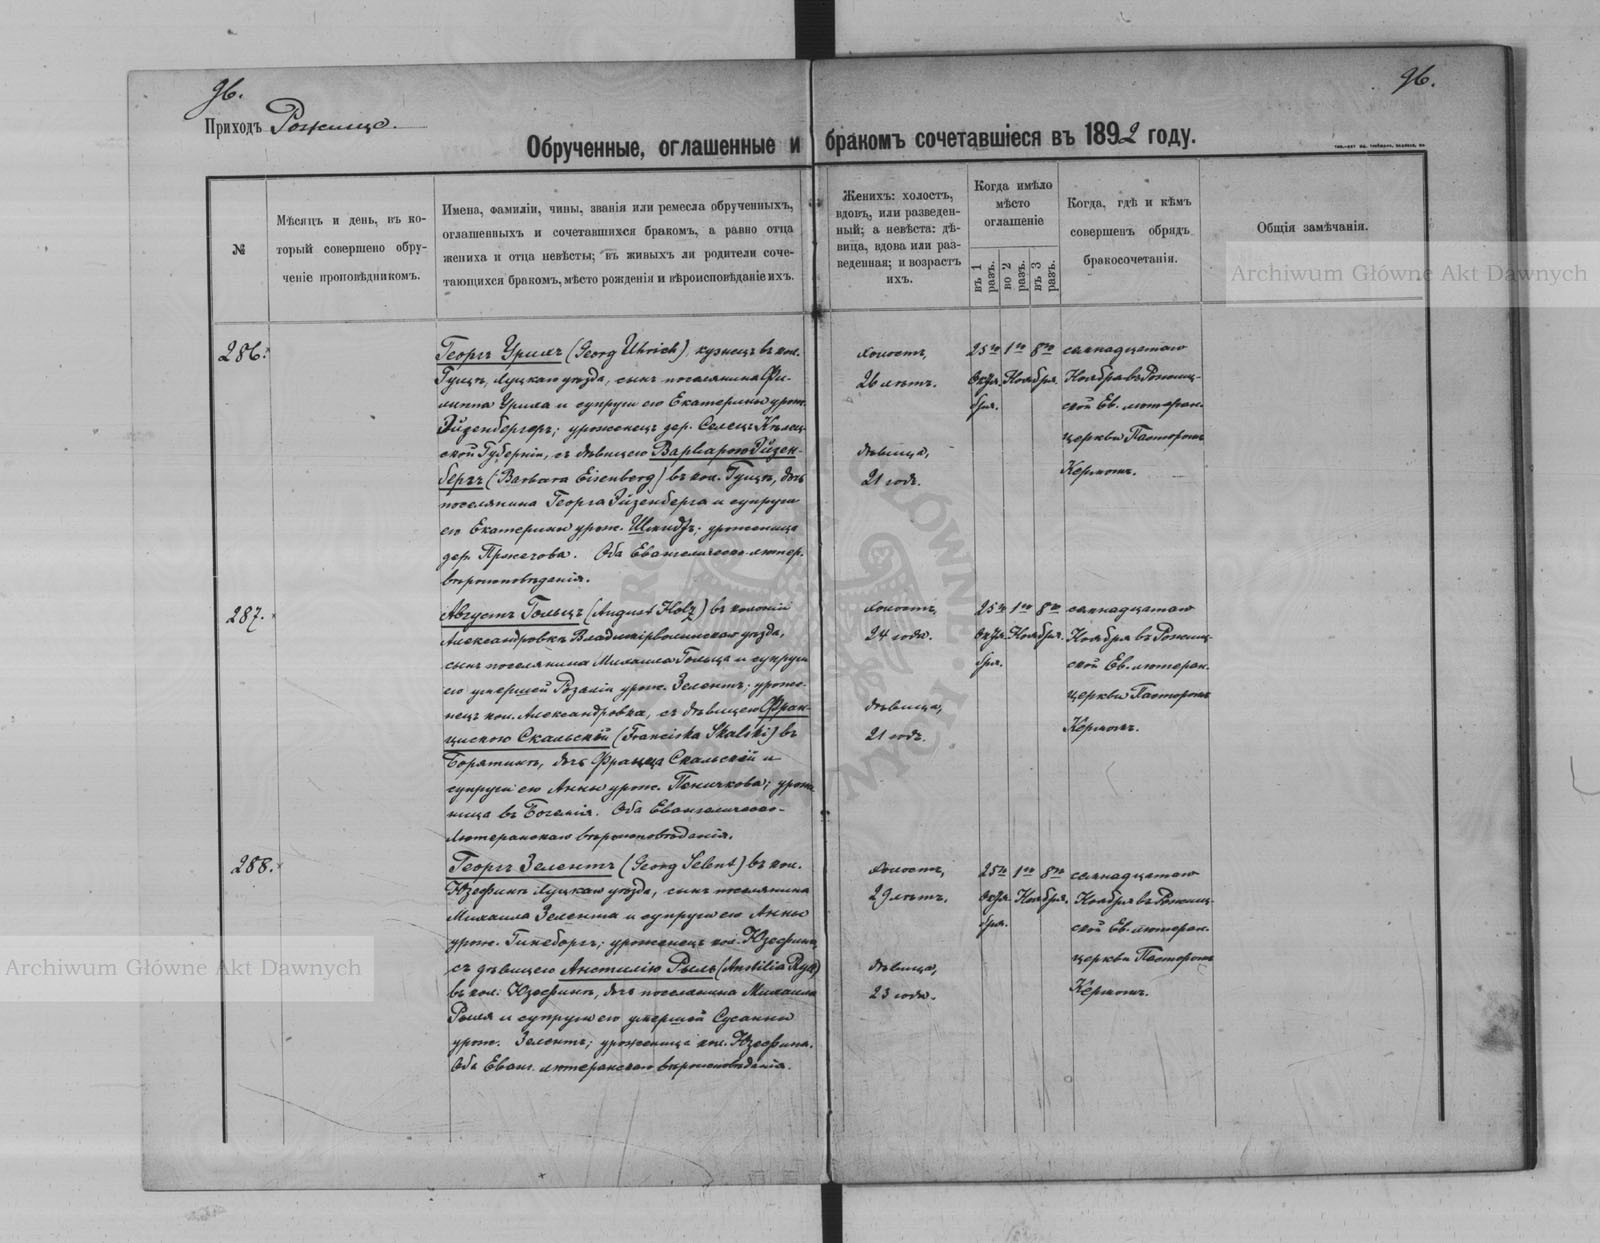 96.
96.
Приходъ Рожище.
Обрученные, оглашенные и бракомъ сочетавшіеся въ 1892 году.
№
Мѣсяцъ и день, въ ко-
торый совершено обру-
ченіе проповѣдникомъ.
Имена, фамиліи, чины, званія или ремесла обрученныхъ,
оглашенныхъ и сочетавшихся бракомъ, а равно отца
жениха и отца невѣсты; въ живыхъ ли родители соче-
тающихся бракомъ, мѣсто рожденія и вѣроисповѣданіе ихъ.
Женихъ: холостъ,
вдовъ, или разведен-
ный; а невѣста: дѣ-
вица, вдова или раз-
веденная; и возрастъ
ихъ.
Когда имѣло
мѣсто
оглашеніе
въ 1 разъ.
во 2 разъ.
въ 3 разъ.
Когда, гдѣ и кѣмъ
совершенъ обрядъ
бракосочетанія.
Общія замѣчанія.
286.
Георгъ Урихъ (Georg Uhrich), кузнецъ въ кол.
Гущѣ, Луцкаго уѣзда, сынъ поселянина Фи-
липпа Уриха и супруги его Екатерины урож.
Эйзенбергеръ; уроженецъ дер. Селецъ Кѣлец-
кой Губерніи, съ дѣвицею Варварою Эйзен-
бергъ (Barbara Eisenberg) въ кол. Гущѣ, дочь
поселянина Георга Эйзенберга и супруги
его Екатерины урож. Шмидтъ; уроженица
дер. Пржегова. Оба Евангелическо-лютер.
вѣроисповѣданія.
холостъ,
26 лѣтъ.
дѣвица,
21 годъ.
25го 1го 8го
Октя- Ноября.
бря.
семнадцатаго
Ноября въ Рожищ-
ской Ев. лютеран.
церкви Пасторомъ
Кермомъ.
287.
Августъ Гольцъ (August Holz) въ колоніи
Александровкѣ Владимірволынскаго уѣзда,
сынъ поселянина Михаила Гольца и супруги
его умершей Розаліи урож. Зелентъ; уроже-
нецъ кол. Александровка, съ дѣвицею Фран-
цискою Скальскій (Franciska Skalski) въ
Борятинѣ, дочь Франца Скальскій и
супруги его Анны урож. ; уроже-
ница въ Богеміи. Оба Евангелическо-
Лютеранскаго вѣроисповѣданія.
холостъ,
24 года.
дѣвица,
21 годъ.
25го 1го 8го
Октя- Ноября.
бря.
семнадцатаго
Ноября въ Рожищ-
ской Ев. лютеран.
церкви Пасторомъ
Кермомъ.
288.
Георгъ Зелентъ (Georg Selent) въ кол.
Юзефинѣ Луцкаго уѣзда, сынъ поселянина
Михаила Зелента и супруги его Анны
урож. ; уроженецъ кол. Юзефина,
съ дѣвицею Анстилію Рыль (Anstilia Ryll)
въ кол. Юзефинѣ, дочь поселянина Михаила
Рыля и супруги его умершей Сусанны
урож. Зелентъ; уроженица кол. Юзефина.
Оба Еванг. лютеранскаго вѣроисповѣданія.
холостъ,
29 лѣтъ.
дѣвица,
23 года.
25го 1го 8го
Октя- Ноября.
бря.
семнадцатаго
Ноября въ Рожищ-
ской Ев. лютеран.
церкви Пасторомъ
Кермомъ.
Archiwum Główne Akt Dawnych
Archiwum Główne Akt Dawnych